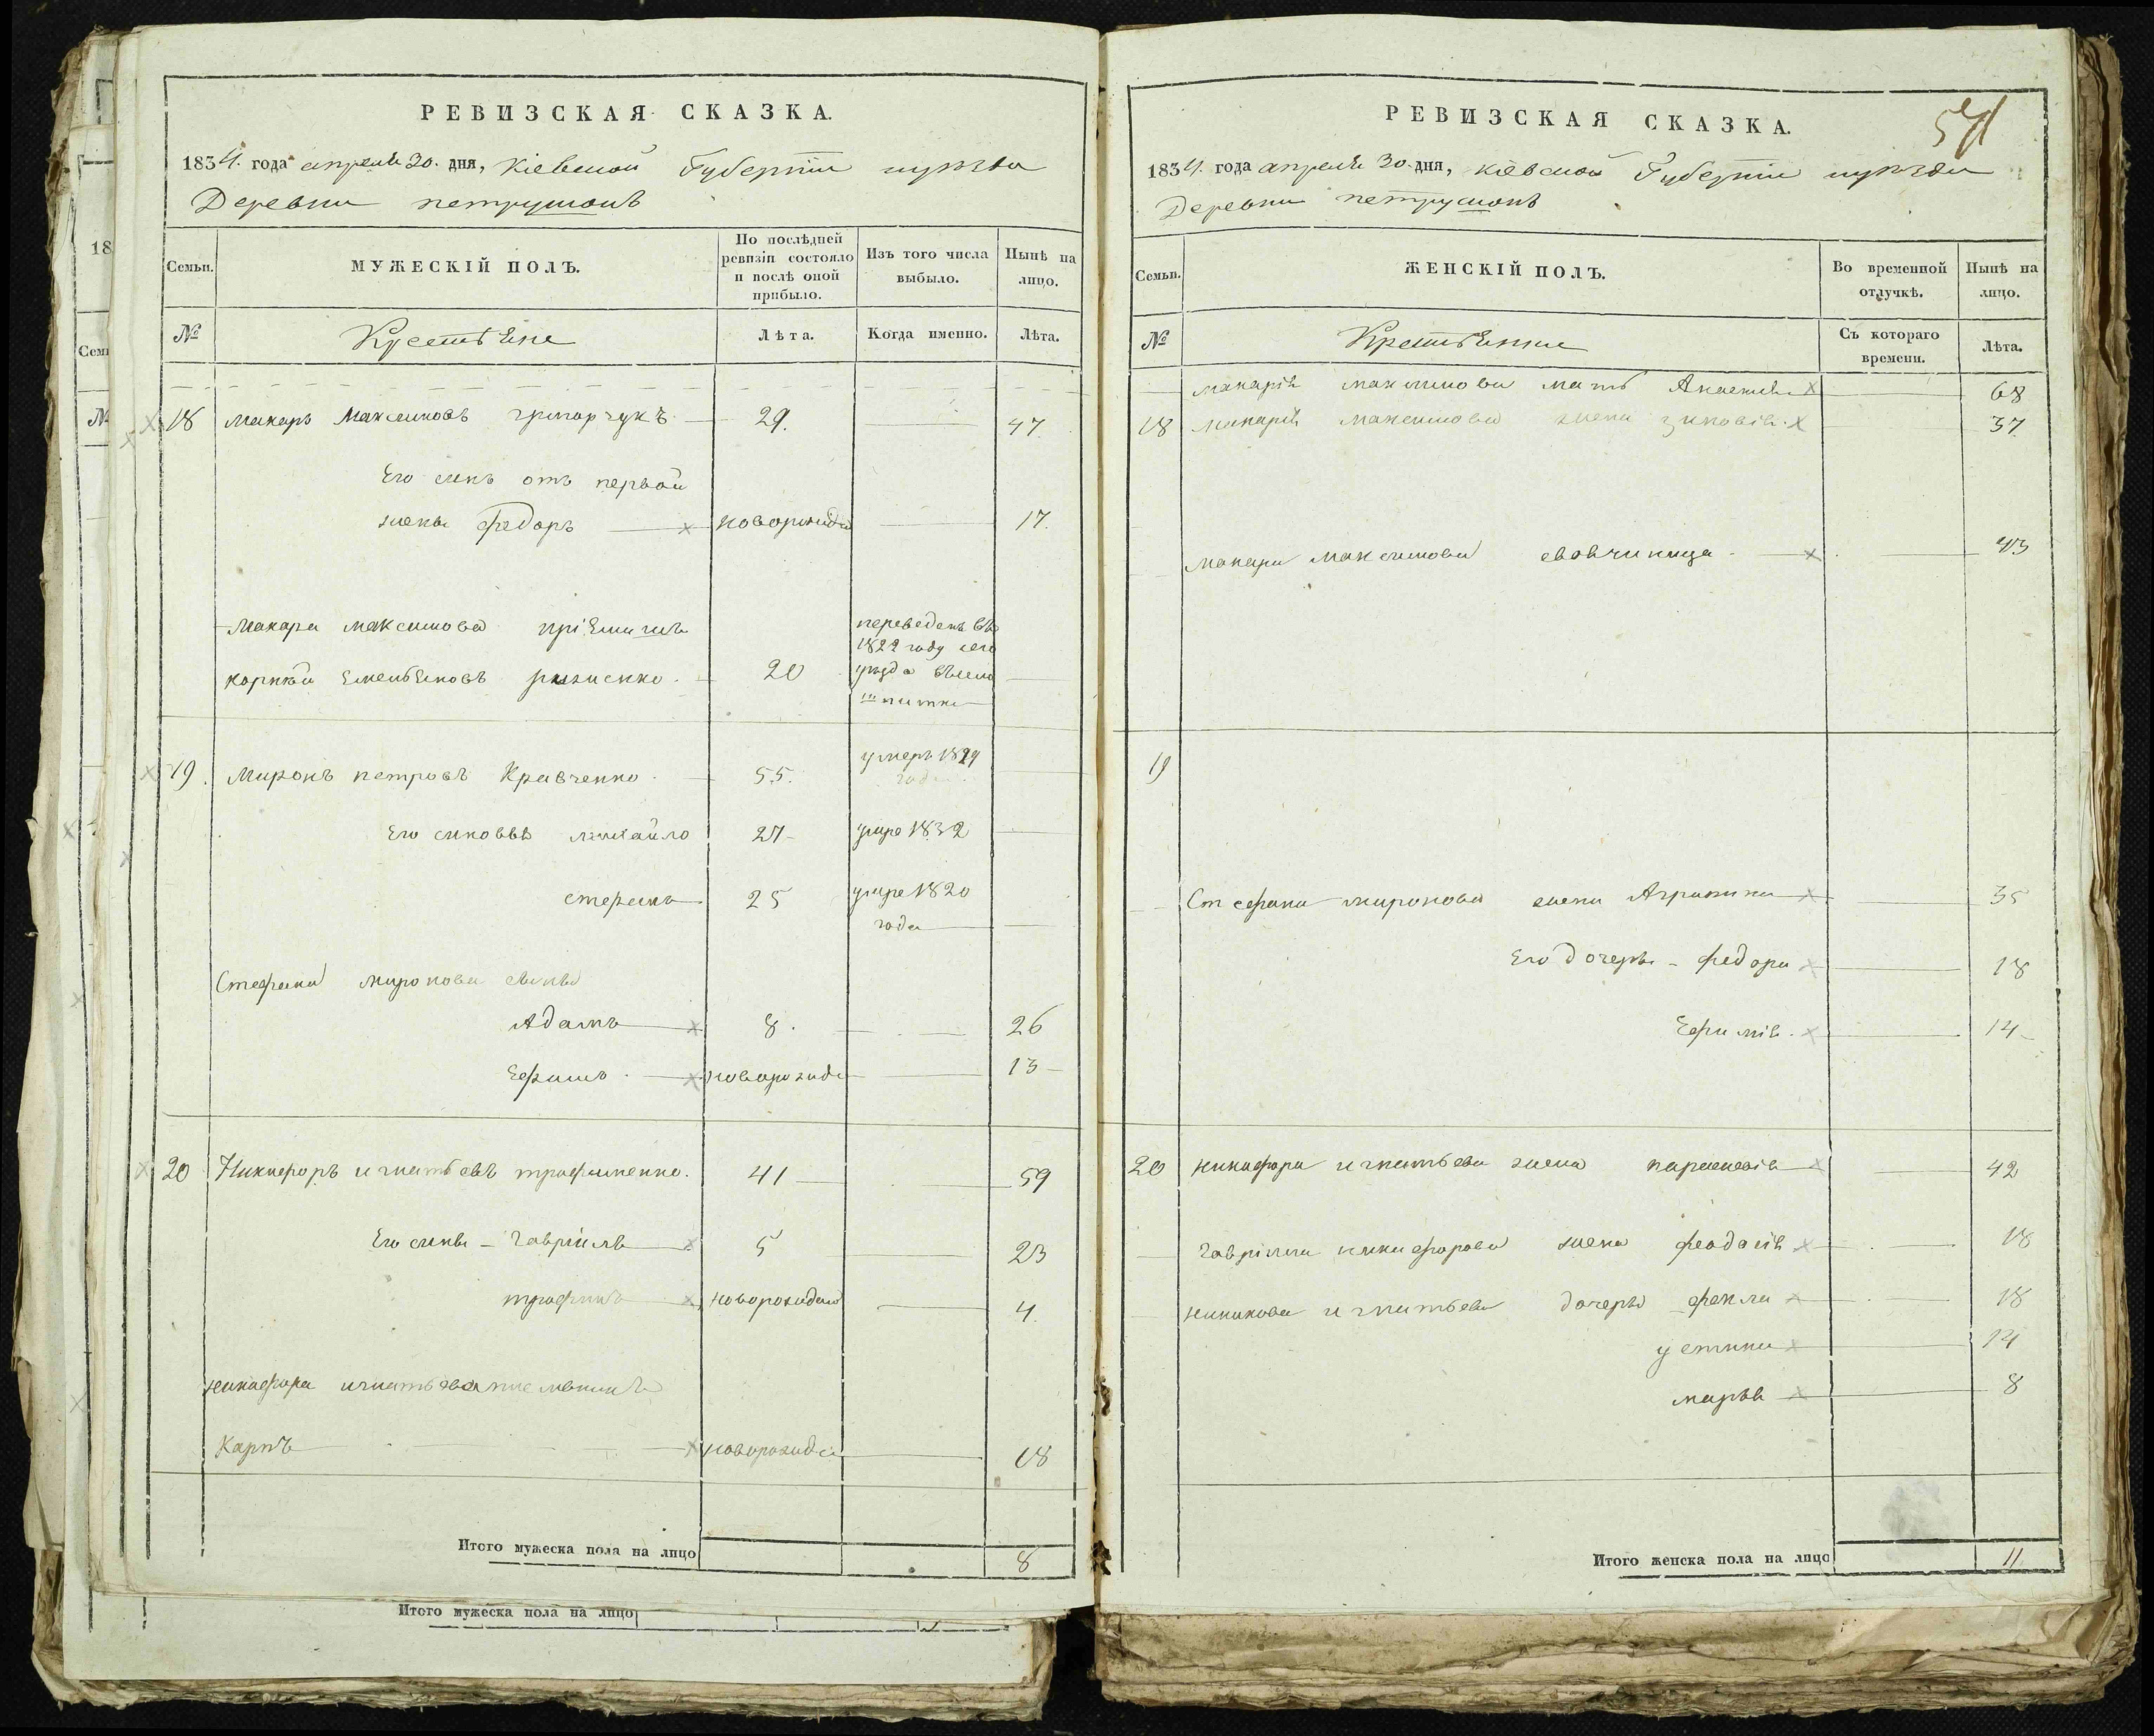 РЕВИЗСКАЯ СКАЗКА.
1834. года апреля 30. дня, Кіевской Губерніи и уѣзда
Деревни петрушокъ
Семьи.
МУЖЕСКІЙ ПОЛЪ.
По послѣдней ревизіи состояло и послѣ оной прибыло.
Изъ того числа выбыло.
Нынѣ на лицо.
№
Крестьяне
Лѣта.
Когда именно.
Лѣта.
18 Макаръ Максимовъ григорчукъ 29. 47
Его синъ отъ первой
жены федоръ новорожде 17.
Макара максимова пріемишъ
корнѣй Емельяновъ 20
переведенъ въ
1822 году сего
уѣзда въ село
19. Миронъ петровъ Кравченко 55. умеръ 1829
года
Его синовья михайло 27 умре 1832
стефанъ 25 умре 1820
года
Стефана миронова сыны
Адамъ 8. 26
Ефимъ новорожде 13
20 Никифоръ игнатьевъ трофименко. 41 59
Его сины - гавріилъ 5 23
трофимъ новорожден 4
никифора игнатьева племяникъ
Карпъ новорожде 18
Итого мужеска пола на лицо 8
Итого мужеска пола на лицо
РЕВИЗСКАЯ СКАЗКА.
571
1834. года апреля 30. дня, кіевской Губерніи и уѣзда
Деревни петрушокъ
Семьи.
ЖЕНСКІЙ ПОЛЪ.
Во временной отлучкѣ.
Нынѣ на лицо.
№
Крестьянки
Съ котораго времени.
Лѣта.
макара максимова мать 68
18 макара максимова жена зиновія 37
макара максимова 43
19
Стефана миронова жена Агрипина 35
Его дочери - федора 18
Ефимія. 14
20 никифора игнатьева жена параскевія 42
гавріила никифорова жена феодосія 18
игнатьева дочери фекла 18
устина 14
марья 8
Итого женска пола на лицо 11